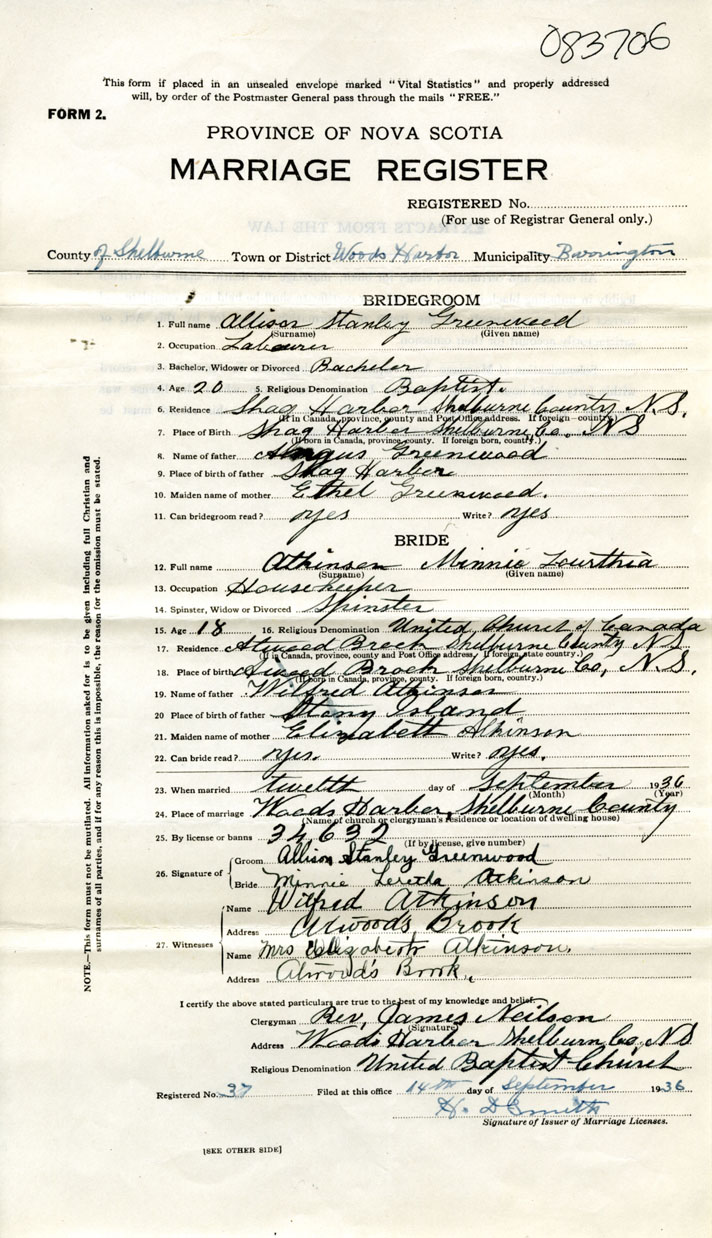 083706
This form if placed in an unsealed envelope marked "Vital Statistics" and properly addressed
will, by order of the Postmaster General pass through the mails "FREE."
FORM 2.
PROVINCE OF NOVA SCOTIA
MARRIAGE REGISTER
REGISTERED No.
(For use of Registrar General only.)
County of Shelburne Town or District Woods Harbor Municipality Barrington
BRIDEGROOM
1. Full name Allison Stanley Greenwood
(Surname) (Given name)
2. Occupation Labourer
3. Bachelor, Widower or Divorced Bachelor
4. Age 20 5. Religious Denomination Baptist.
6. Residence Shag Harbor Shelburne County N.S.
(If in Canada, province, county and Post Office address. If foreign country.)
7. Place of Birth Shag Harbor Shelburne Co. NS
(If born in Canada, province, county. If foreign born, country.)
8. Name of father Angus Greenwood
9. Place of birth of father Shag Harbor
10. Maiden name of mother Ethel Greenwood.
11. Can bridegroom read? yes Write? yes
BRIDE
12. Full name Atkinson Minnie
(Surname) (Given name)
13. Occupation Housekeeper
14. Spinster, Widow or Divorced Spinster
15. Age 18 16. Religious Denomination United Church of Canada
17. Residence Atwood Brook Shelburne County NS
(If in Canada, province, county and Post Office address. If foreign state country.)
18. Place of birth Atwood Brook Shelburne Co, N.S.
(If born in Canada, province, county. If foreign born, country.)
19. Name of father Wilfred Atkinson
20 Place of birth of father Stony Island
21. Maiden name of mother Elizabeth Atkinson
22. Can bride read? yes. Write? yes.
23. When married twelth day of September 1936
(Month) (Year)
24. Place of marriage Woods Harbor, Shelburne County
(Name of church or clergyman's residence or location of dwelling house)
25. By license or banns 34,632
(If by license, give number)
26. Signature of Groom Allison Stanley Greenwood
Bride Minnie Leretha Atkinson
27. Witnesses Name Wilfred Atkinson
Address Atwoods Brook
Name Mrs Elizabeth Atkinson.
Address Atwood's Brook.
I certify the above stated particulars are true to the best of my knowledge and belief.
Clergyman Rev. James Neilson
(Signature)
Address Woods Harbor Shelburn Co, NS
Religious Denomination United Baptist Church
Registered No. 37 Filed at this office 14th day of September 1936
H. D Smith
Signature of Issuer of Marriage Licenses.
[SEE OTHER SIDE]
NOTE.—This form must not be mutilated. All information asked for is to be given including full Christian and
surnames of all parties, and if for any reason this is impossible, the reason for the omission must be stated.